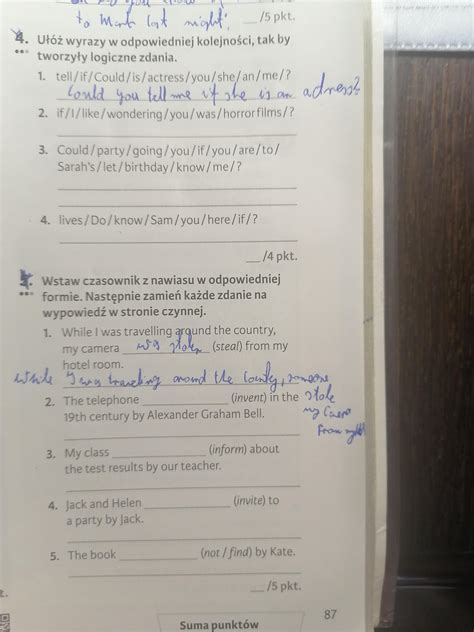 to Mark last night. __/5 pkt.
4. Ułóż wyrazy w odpowiedniej kolejności, tak by
tworzyły logiczne zdania.
1. tell / if / Could / is / actress / you / she / an / me / ?
Could you tell me if she is an adress?
2. if / I / like / wondering / you / was / horror films / ?
3. Could / party / going / you / if / you / are / to /
Sarah's / let / birthday / know / me / ?
4. lives / Do / know / Sam / you / here / if / ?
__/4 pkt.
5. Wstaw czasownik z nawiasu w odpowiedniej
formie. Następnie zamień każde zdanie na
wypowiedź w stronie czynnej.
1. While I was travelling around the country,
my camera was stolen (steal) from my
hotel room.
While I was traveling around the country, someone
stole
my
from my
2. The telephone ______ (invent) in the
19th century by Alexander Graham Bell.
3. My class ______ (inform) about
the test results by our teacher.
4. Jack and Helen ______ (invite) to
a party by Jack.
5. The book ______ (not / find) by Kate.
__/5 pkt.
87
Suma punktów